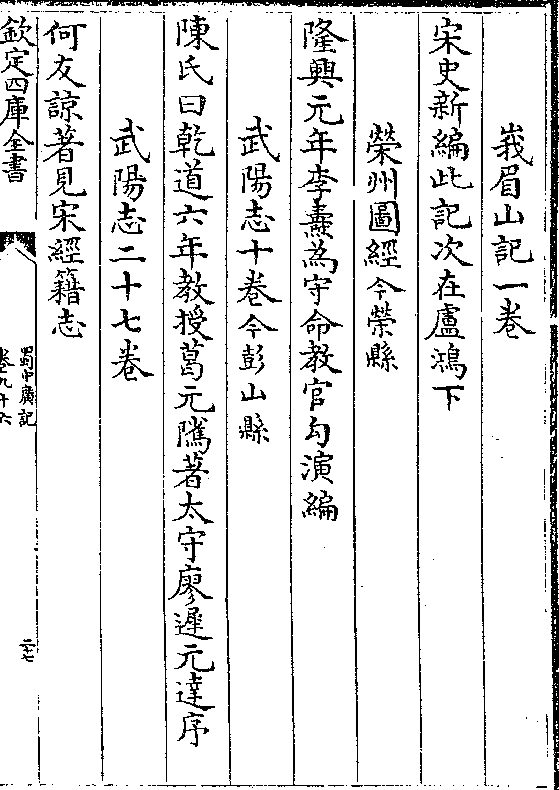 峩眉山記一卷
宋史新編此記次在盧鴻下
榮州圖經今榮縣
隆興元年李燾為守命教官勾演編
武陽志十卷今彭山縣
陳氏曰乾道六年教授葛元隲著太守廖遲元達序
武陽志二十七卷
何友諒著見宋經籍志
欽定四庫全書
蜀中廣記
卷九十六
二十七